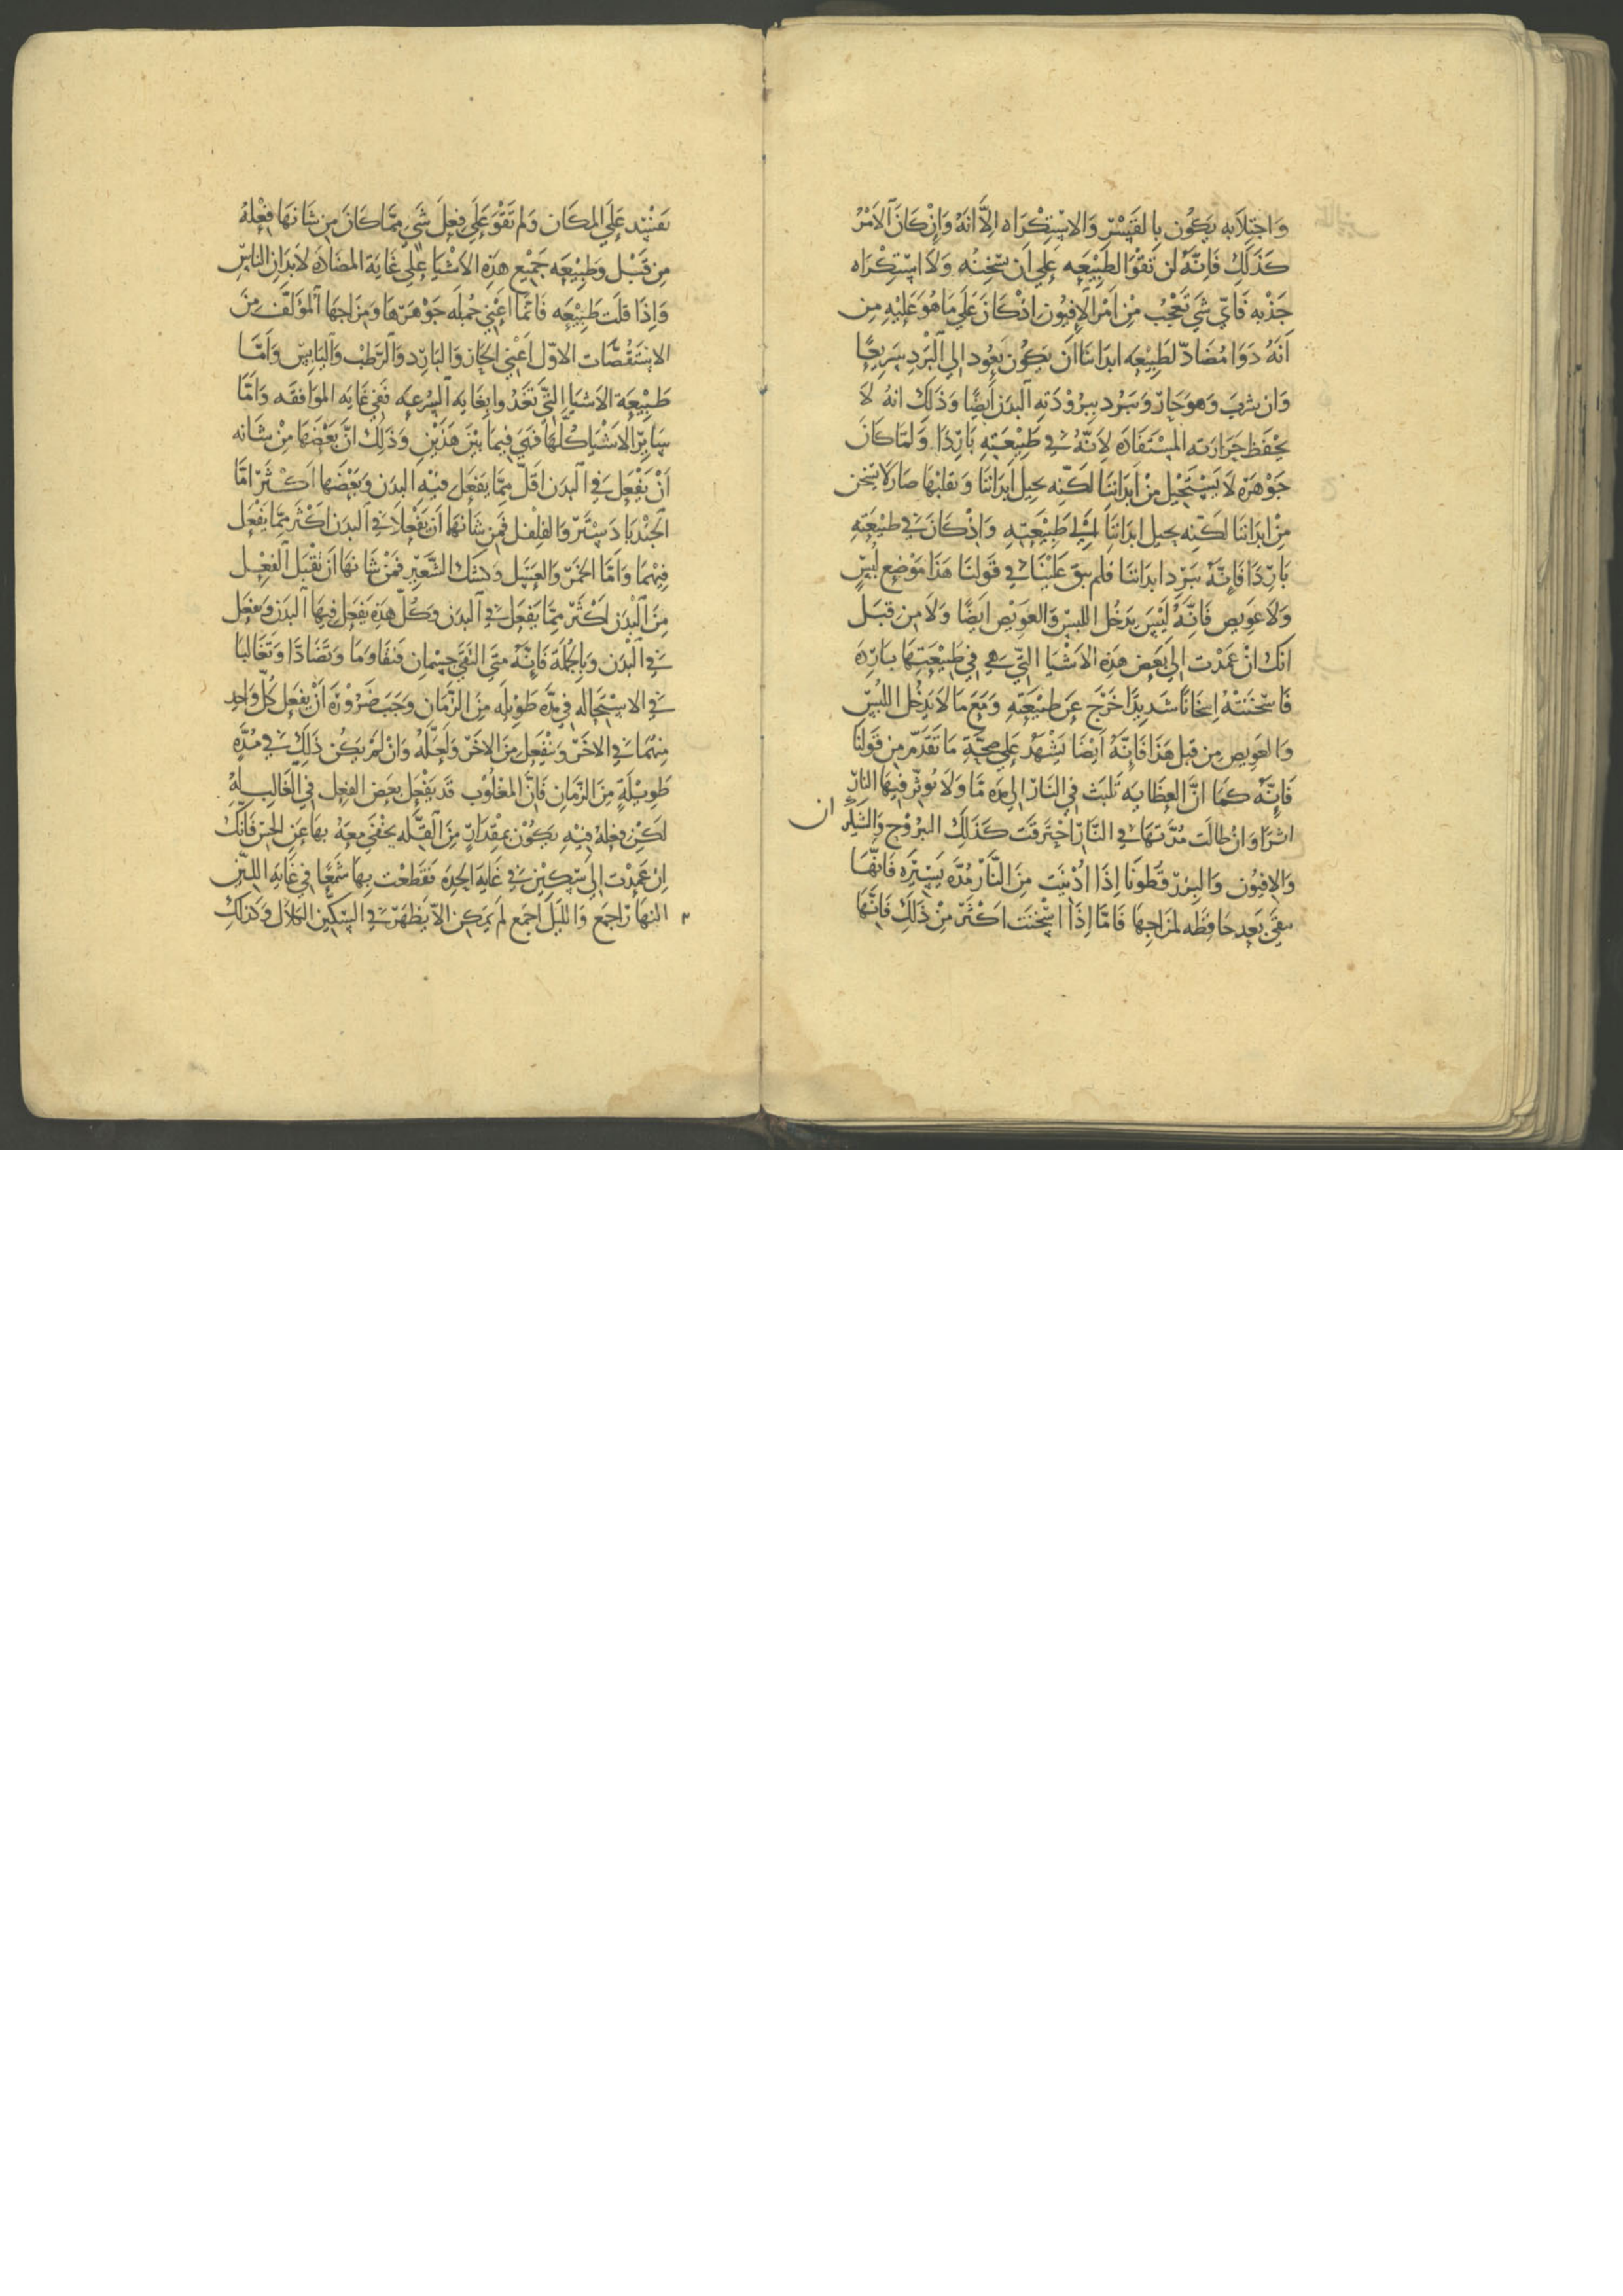 وَاجتِلَابه يَكُون بِالقَسْرِ وَالاسْتِكْرَاه اِلَّا انَهُ وَاِنْ كَانَ اَلاَمْرُ
كَذَلِكَ فَاِنَّهُ لَن تَقْوَا الطَبِيْعَه عَلي اَن تسْخِنُه وَلَا اسْتِكْرَاه
جَذْبِه فَايّ شَي تَعْجُب مِنْ اَمْر الاَفِيُون اِذْ كَانَ عَلَي مَا هُوَ عَلَيْهِ مِن
اَنَهُ دَوَا مُضَادّ لطَبِيْعَه ابدَاننَا اَن يَكُون يَعُود اِلي اَلبَرْدِ سَرِيعًا
وَان شرِبَ وَهوَ حَارّ وَيبَرد بِبرُوْدَتهِ اَلبَدَن اَيضًا وَذَلِكَ انهُ لَا
يَحْفَظ حَرَارَته المسْتَفَادَه لِاَنّهُ في طَبِيْعَتِهِ بَارِدًا وَلمّا كَانَ
جَوْهَرَه لَا يَسْتَحِيْل مِنْ اَبدَاننَا لَكنّه يحِيل اَبدَاننَا وَيقلبُهَا صَارَ لَا يسخن
مِنْ ابدَاننَا لكنّه يحيل ابدَاننَا اِلي طَبِيْعَتِهِ وَاِذْ كَانَ في طبيْعَتِهِ
بَارِدًا فَاِنَّهُ يبَرّد ابدَاننَا فلم يبقَ عَلَيْنَا في قَولنَا هَذَا مَوْضِع لُبسٍ
وَلَا عَوِيص فَاِنَّهُ لَيْسَ يَدخُل اللبسَ وَالعَوِيْص اَيضًا وَلَا مِن قبَل
انكَ انْ عَمَدْت اِلي بَعَض هَذِه الاَشْيَا التي هي في طَبِيْعَتِهَا بَارِدَه
فَاسْخنَتهُ اِسخَانًا شَدِيدًا خَرَج عَن طَبيْعَتِهِ وَمَعَ مَا لَا يَدْخُل اللبسَ
وَالعَوِيصِ مِن قبل هَذَا فَاِنَّهُ اَيْضًا يَشْهَدْ عَلي صِحَّةِ مَا تَقَدَّمَ مِن قَولنَا
فَاِنَّه كَمَا انَّ العِظَايَه تَلبَث في النَار اِلي مدَه مَّا وَلَا تُوَثّر فيهَا النَار
اثرًا وَانْ طَالَت مُدّتهَا في النَار احتَرقَت كَذَلِكَ اليبرُوْح وَالشَيلَم
ان
وَالافيُون وَالبزر قطُونَا اِذَا اُدْنيَت مِنَ النَّار مُدَّه يَسيرَه فَانّهَا
تبقي بَعَد حَافِظَه لمزَاجِهَا فَامَّا اِذَا اسْخنَت اكثَر مِنْ ذَلِكَ فَانّهَا
تفسُد عَلي المكَان وَلم تَقْوَ عَلَي فِعل شَي مِمَّا كَانَ مِن شَانهَا فِعْلهُ
مِن قَبْل وَطَبِيْعَه جَميع هَذِه الاَشْيَا عَلي غَايَة المضَادَه لاَبدَان الناسِ
وَاِذَا قلت طَبيْعَه فَانمَا اَعْني جُملَه جَوْهَرهَا وَمزَاجهَا المؤلّف مِنَ
الاسْتَقُصَّات الاوّل اَعْني الحَار وَالبَارد وَالرّطب وَاليَابِس وَامَّا
طَبِيْعَة الاَشيَا التي تَغذُوا بغَايه السُرعَه فَفي غَايَه الموَافقَه وَامَّا
سَاير الاَشيَا كُلهَا فَهي فِيمَا بَيْنَ هَذَيْن وَذَلِكَ انَّ بَعْضَهَا مِنْ شَانه
اَنْ يَفعَل في اَلبدَن اقَلّ مِمَّا يَفعَل فيْهِ البدَن وَبَعْضَها اَكثَر امَّا
الجندبَادسْتر وَالفلفل فَمِن شَانهَا اَن يَفْعلَا في اَلبدَن اكثَر مِمَّا يَفعَل
فِيْهمَا وَامَّا الخمر وَالعَسَل وَكشك الشَّعِير فَمنْ شَانهَا اَن تقْبَل الفِعْل
مِنَ البَدَن اكثَر مِمَّا يَفعَل في اَلبدَن وَكُلّ هَذِه يَفعَل فِيهَا اَلبدَن وَيفعَل
في اَلبدَن وَبالجُملَة فَاِنَّهُ متي التَقي جسْمَان فَتفَاوَمَا وَتَضَادَّا وَتَغَالبَا
في الاسْتحَاله في مدَّه طَوِيلَه مِنَ الزّمَان وَجَبَ ضَرُوْرَة اَنْ يَفعَل كُلّ وَاحِد
مِنهُمَا في الاخَر وَيَنْفَعِل مِنَ الاخَر وَلَعَلّهُ وَانْ لَمْ يَكُن ذَلِكَ في مُدَّه
طَوِيْلَةٍ مِنَ الزّمَان فَانَّ المغلُوْب قَد يَفْعَل بَعَض الفعِل في الغَالِب لَهُ
لَكِن فِعْلهُ فيْهِ يَكُوْن بمقدَارٍ مِنَ القلّه يخفَي مَعَهُ بهَا عَنِ الحسّ فَانكَ
اِن عَمدْت اِلَي سِكين في غَايَة الحِدَه فَقَطعْت بِهَا شَمَعًا في غَايَه اللين
النهَار اجمَع وَاللَيْل اجمَع لَم يمكِن الاّ يَظهَر في السّكّين الكلَال وَكَذلِكَ